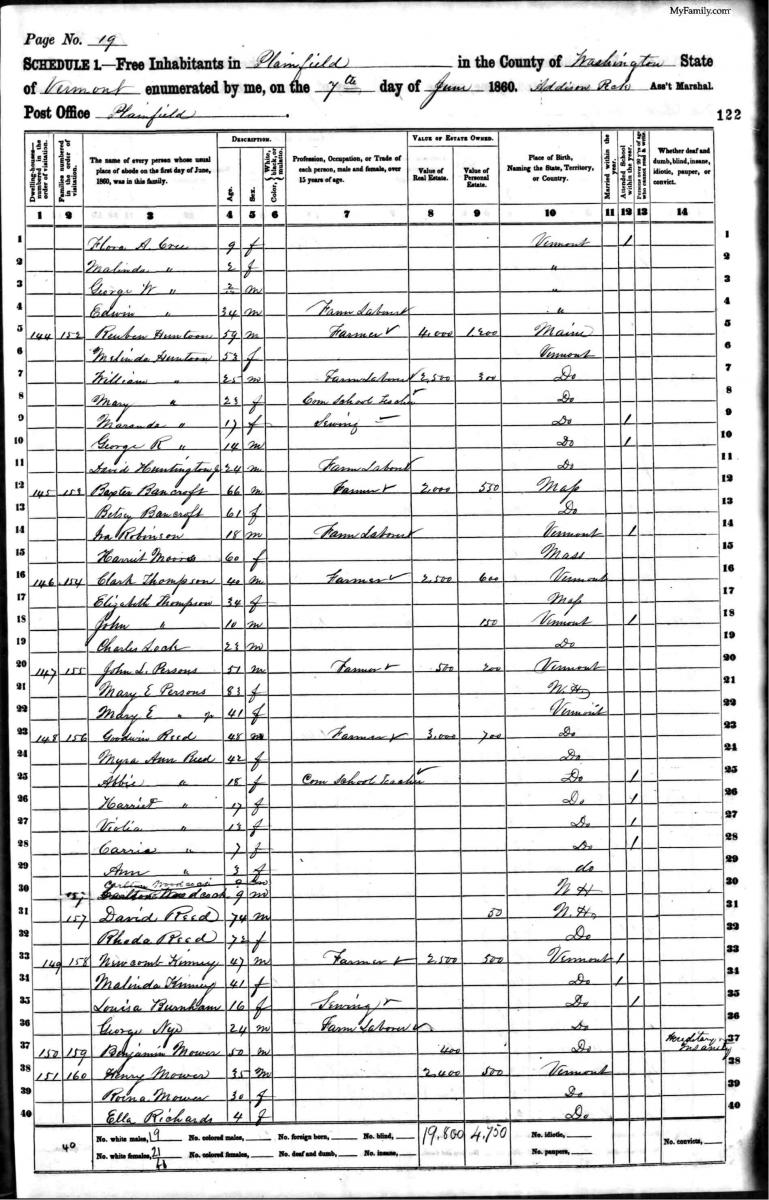 MyFamily.com
Page No. 19
SCHEDULE 1.—Free Inhabitants in Plainfield in the County of Washington State
of Vermont enumerated by me, on the 7th day of June 1860. Addison Ass't Marshal.
Post Office Plainfield 122
Dwelling-houses—numbered in the order of visitation. Families numbered in the order of visitation. The name of every person whose usual place of abode on the first day of June, 1860, was in this family. DESCRIPTION. Age. Sex. Color, White, black, or mulatto. Profession, Occupation, or Trade of each person, male and female, over 15 years of age. VALUE OF ESTATE OWNED. Value of Real Estate. Value of Personal Estate. Place of Birth, Naming the State, Territory, or Country. Married within the year. Attended School within the year. Persons over 20 years of age who cannot read & write. Whether deaf and dumb, blind, insane, idiotic, pauper, or convict.
1 2 3 4 5 6 7 8 9 10 11 12 13 14
1 Flora A. Cree 9 f Vermont 1 1
2 Malinda " 2 f " 2
3 George W " m " 3
4 Edwin " 34 m Farm Laborer " 4
5 144 152 Reuben Huntoon 59 m Farmer 4,000 1,200 Maine 5
6 Melinda Huntoon 53 f Vermont 6
7 William " 25 m Farm Laborer 2,500 300 Do 7
8 Mary " 23 f Com School Teacher Do 8
9 Maranda " 17 f Sewing Do 1 9
10 George R " 14 m Do 1 10
11 Huntington 24 m Farm Labor Do 11
12 145 153 Baxter Bancroft 66 m Farmer 2,000 550 Mass 12
13 Betsey Bancroft 61 f Do 13
14 Ira Robinson 18 m Farm Laborer Vermont 1 14
15 Harriet Moore 60 f Mass 15
16 146 154 Clark Thompson 40 m Farmer 2,500 600 Vermont 16
17 Elizabeth Thompson 34 f Mass 17
18 John " 10 m 150 Vermont 1 18
19 Charles 23 m Do 19
20 147 155 John L. Persons 51 m Farmer 500 200 Vermont 20
21 Mary E Persons 83 f N. H. 21
22 Mary E " Jr 41 f Vermont 22
23 148 156 Goodwin Reed 48 m Farmer 3,000 700 Do 23
24 Myra Ann Reed 42 f Do 24
25 Abbie " 18 f Com School Teacher Do 1 25
26 Harriet " 17 f Do 1 26
27 Violia " 13 f Do 1 27
28 Carrie " 7 f Do 1 28
29 Ann " 3 f do 29
30 Carlton Woodcock 9 m N H 30
31 157 David Reed 74 m 50 N. H. 31
32 Rhoda Reed 72 f Do 32
33 149 158 Newcomb Kinney 47 m Farmer 2,500 500 Vermont 1 33
34 Malinda Kinney 41 f Do 1 34
35 Louisa Burnham 16 f Sewing Do 1 35
36 George Nye 24 m Farm Laborer Do 36
37 150 159 Benjamin Mower 50 m 400 Do Hereditary Insanity 37
38 151 160 Henry Mower 35 m 2,400 500 Vermont 38
39 Roina Mower 30 f Do 39
40 Ella Richards 4 f Do 40
40 No. white males, 19 No. colored males, No. foreign born, No. blind, 19,800 4,750 No. idiotic, No. convicts,
No. white females, 21 No. colored females, No. deaf and dumb, No. insane, No. paupers,